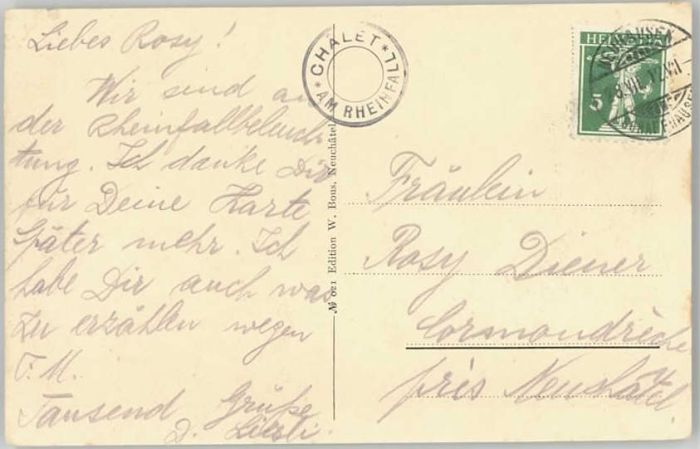 Liebes Rosy!
Wir sind an
der Rheinfallbeleuch
tung. Ich danke Dir
für Deine Karte
Später mehr. Ich
habe Dir auch was
zu erzählen wegen
T. M.
Tausend Grüße
D. Liesti.
CHALET
AM RHEINFALL
№ 021 Edition W. Bous, Neuchâtel
HELVETIA
5
NEUHAUSEN
Fräulein
Rosy Diener
Cormondrèche
près Neuchâtel.